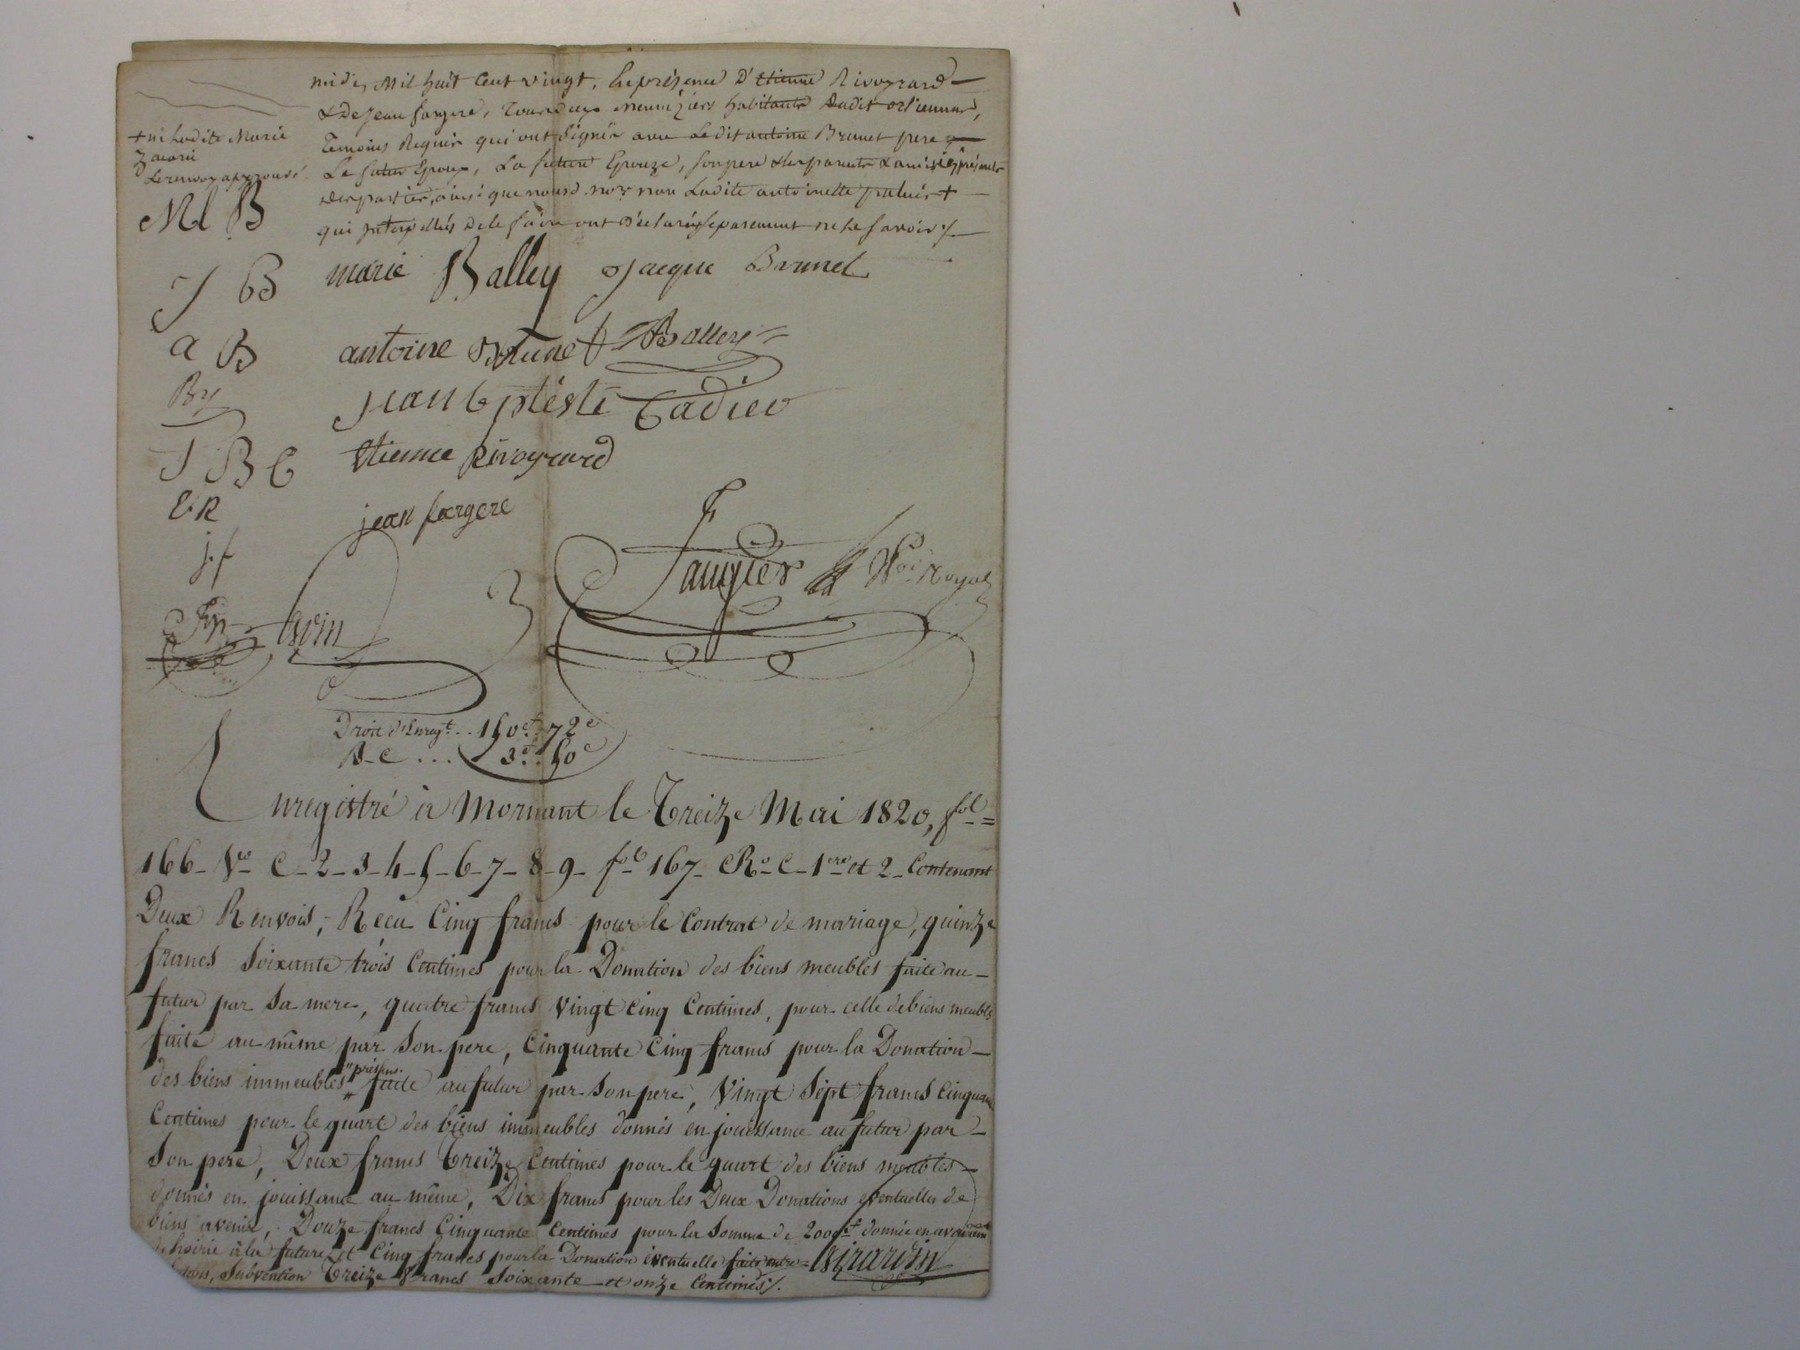 midi, Mil huit Cent vingt, En présence d'etienne Rivoyrard
& de jean fargere, tous deux habitants dudit orlienas,
Temoins Requis qui ont Signés avec Le dit antoine Brunet pere
Le futur Epoux, La future Epouze, son pere & les parents & amis
des parties, ainsi que nousd. no.re non Ladite antoinette +
qui interpellés de le faire ont Déclaré séparement ne le savoir ./.
+ ni Ladite Marie
Le renvoy approuvé
Md B
marie Balley Jacque Brunet
J B
antoine Brunet Balley
a B
By
jean bptéste Cadieu
J B C
Etienne Rivoyrard
E R
jean fargere
j. f
faugier Nre. Royal
Droit d'Enregt. . . 150f 72c
S-C . . . 3f. 50c
Enregistré à Mornant le Treize Mai 1820, fol=
166 - Vo C - 2 - 3 - 4 - 5 - 6 - 7 - 8 - 9 - fo 167 - Ro C - 1ere et 2 - Contenant
Deux Renvois ; Reçu Cinq francs pour le Contrat de mariage, quinze
francs Soixante trois Centimes pour la Donation des biens meubles faite au-
futur par Sa mere, quatre francs Vingt cinq Centimes, pour celle de biens meubles
faite au même par Son pere, Cinquante Cinq francs pour la Donation -
des biens immeubles "présens." faite au futur par Son pere, Vingt Sept francs Cinquante
Centimes pour le quart des biens immeubles donnés en jouissance au futur par -
Son pere, Deux francs Treize Centimes pour le quart des biens meubles -
donnés en jouissance au même, Dix francs pour les Deux Donations eventuelles de
biens avenir, Douze francs Cinquante Centimes pour la Somme de 2000f donnée en avancement
d'hoirie à la future et Cinq francs pour la Donation éventuelle faite entre =
Subvention Treize Francs Soixante et onze Centimes ./.
Girardin